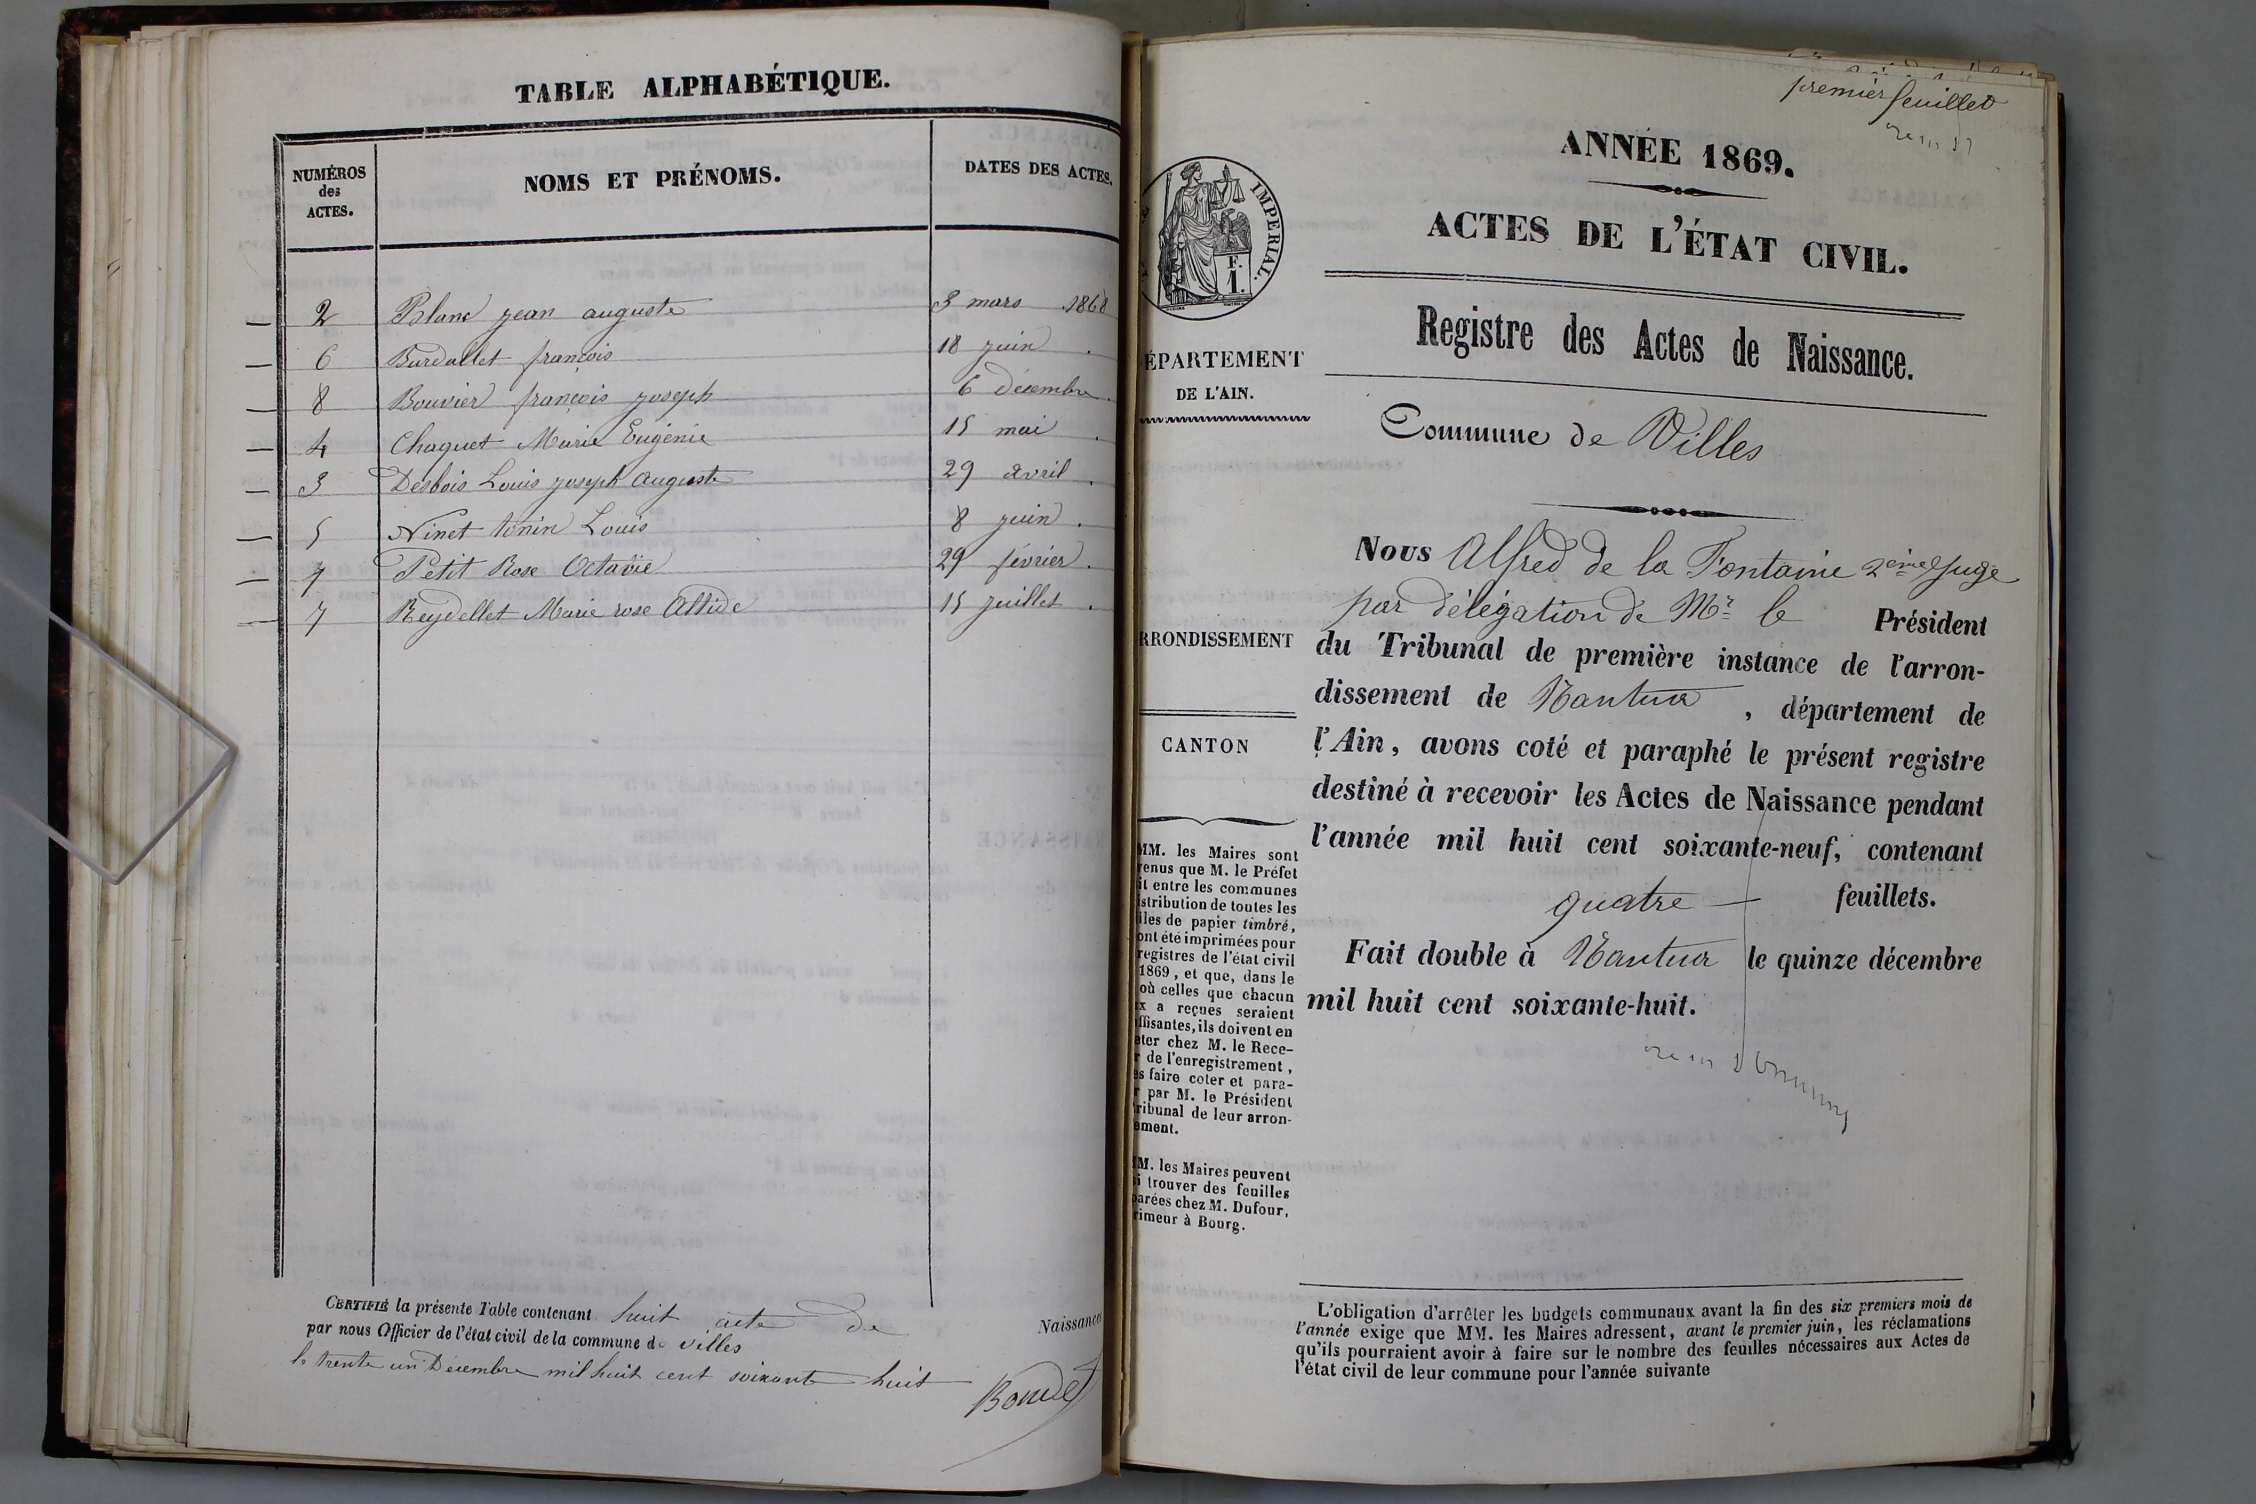 TABLE ALPHABÉTIQUE.
NUMÉROS des ACTES. NOMS ET PRÉNOMS. DATES DES ACTES.
2 Blanc jean auguste 3 mars 1868
6 Burdallet françois 18 juin .
8 Bouvier françois joseph 6 décembre .
4 Chaquet Marie Eugénie 15 mai .
3 Desbois Louis joseph auguste 29 avril .
5 Ninet tonin Louis 8 juin .
Petit Rose Octavie 29 février .
7 Reydellet Marie rose 15 juillet .
CERTIFIÉ la présente Table contenant huit acte de Naissance
par nous Officier de l'état civil de la commune de villes
le trente un Décembre mil huit cent soixante huit
premier feuillet
ANNÉE 1869.
ACTES DE L'ÉTAT CIVIL.
Registre des Actes de Naissance.
Commune de Villes
Nous Alfred de la Fontaine 2eme Juge
par délégation de Mr le Président
du Tribunal de première instance de l'arron-
dissement de Nantua , département de
l'Ain, avons coté et paraphé le présent registre
destiné à recevoir les Actes de Naissance pendant
l'année mil huit cent soixante-neuf, contenant
quatre feuillets.
Fait double à Nantua le quinze décembre
mil huit cent soixante-huit.
IMPERIAL.
F.
1.
ÉPARTEMENT
DE L'AIN.
RRONDISSEMENT
CANTON
MM. les Maires sont
venus que M. le Préfet
it entre les communes
istribution de toutes les
iles de papier timbré,
ont été imprimées pour
registres de l'état civil
1869, et que, dans le
où celles que chacun
x a reçues seraient
ffisantes, ils doivent en
eter chez M. le Rece-
r de l'enregistrement,
es faire coter et para-
r par M. le Président
ribunal de leur arron-
ement.
MM. les Maires peuvent
si trouver des feuilles
parées chez M. Dufour,
rimeur à Bourg.
L'obligation d'arrêter les budgets communaux avant la fin des six premiers mois de
l'année exige que MM. les Maires adressent, avant le premier juin, les réclamations
qu'ils pourraient avoir à faire sur le nombre des feuilles nécessaires aux Actes de
l'état civil de leur commune pour l'année suivante